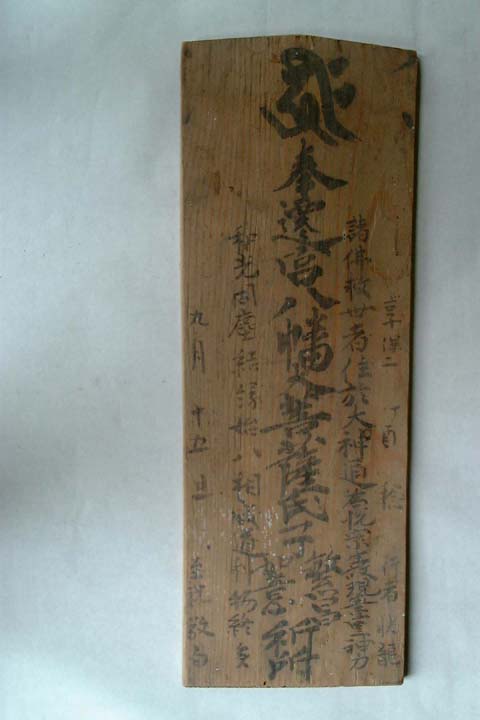 享保二 丁酉 稔 行者
諸佛救世者住於大神通為悦衆生故現無量神力
奉遷宮八幡大菩薩氏子繁昌 祈所
和光同塵結縁始八相成道利物終矣
九月 十五旦 敬白